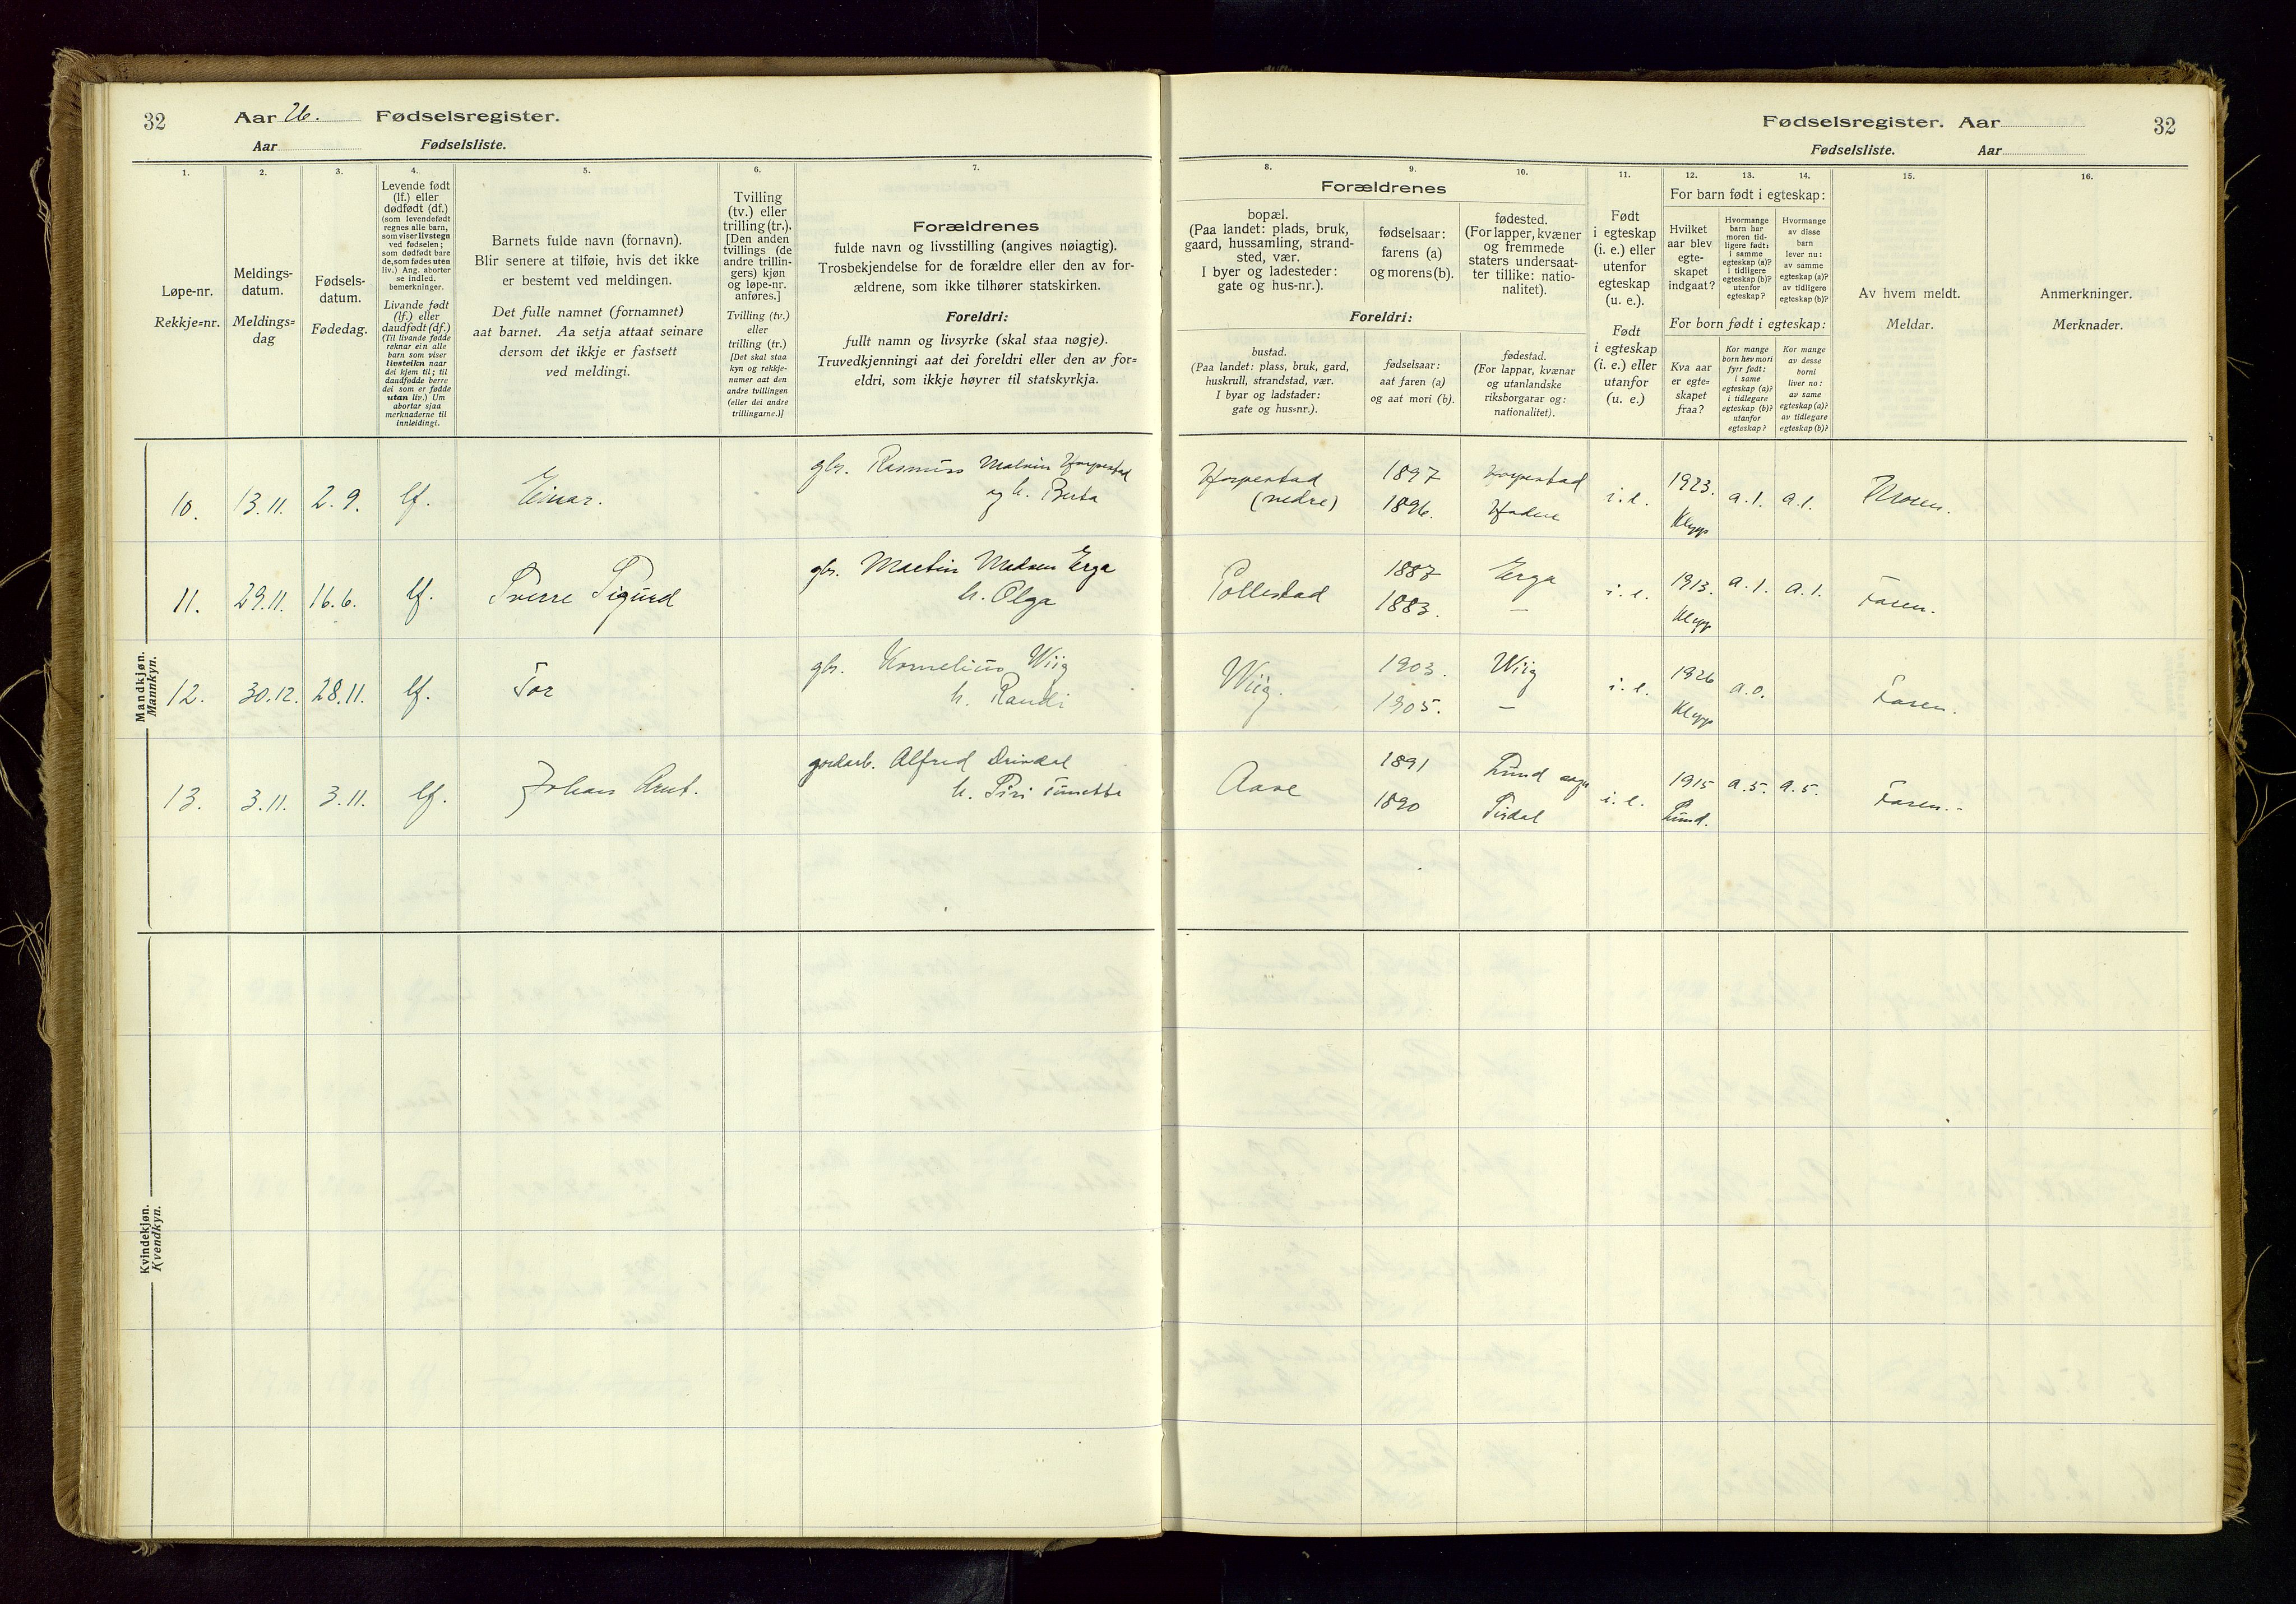 32
Aar 26. Fødselsregister.
Aar Fødselsliste.
1.
2.
3.
4.
5.
6.
7.
Løpe-nr.
Rekkje=nr.
Meldings-
datum.
Meldings=
dag
Fødsels-
datum.
Fødedag.
Levende født
(lf.) eller
dødfødt (df.)
(som levendefødt
regnes alle barn,
som viser livstegn
ved fødselen;
som dødfødt bare
de, som fødes uten
liv.) Ang. aborter
se indled.
bemerkninger.
Livande født
(lf.) eller
daudfødt (df.)
(Til livande fødde
reknar ein alle
barn som viser
livsteikn naar
dei kjem til; til
daudfødde berre
dei som er fødde
utan liv.) Um
abortar sjaa
merknaderne til
innleidingi.
Barnets fulde navn (fornavn).
Blir senere at tilføie, hvis det ikke
er bestemt ved meldingen.
Det fulle namnet (fornamnet)
aat barnet. Aa setja attaat seinare
dersom det ikkje er fastsett
ved meldingi.
Tvilling
(tv.) eller
trilling (tr.).
[Den anden
tvillings (de
andre trillin-
gers) kjøn
og løpe-nr.
anføres.]
Tvilling (tv.)
eller
trilling (tr.)
[Det skal staa
kyn og rekkje-
numer aat den
andre tvillingen
(eller dei andre
trillingarne.)]
Forældrenes
fulde navn og livsstilling (angives nøiagtig).
Trosbekjendelse for de forældre eller den av for-
ældrene, som ikke tilhører statskirken.
Foreldri:
fullt namn og livsyrke (skal staa nøgje).
Truvedkjenningi aat dei foreldri eller den av for=
eldri, som ikkje høyrer til statskyrkja.
Mandkjøn.
Mannkyn.
10. 13.11. 2.9. lf. Einar. gbr. Rasmus Malvin Horpestad
og h. Berta
11. 29.11. 16.6. lf. Sverre Sigurd gbr. Martin Madsen Erga
h. Olga
12. 30.12. 28.11. lf. Tor gbr. Kornelius Wiig
h. Randi
13. 3.11. 3.11. lf. Johan Arnt. gardarb. Alfred Drivdal
h. Siri Tunette
Kvindekjøn.
Kvendkyn.
Fødselsregister. Aar 32
Fødselsliste. Aar
8.
9.
10.
11.
12.
13.
14.
15.
16.
Forældrenes
bopæl.
(Paa landet: plads, bruk,
gaard, hussamling, strand-
sted, vær.
I byer og ladesteder:
gate og hus-nr.).
fødselsaar:
farens (a)
og morens (b).
fødested.
(For lapper, kvæner
og fremmede
staters undersaat-
ter tillike: natio-
nalitet).
Foreldri:
bustad.
(Paa landet: plass, bruk, gard,
huskrull, strandstad, vær.
I byar og ladstader:
gate og hus=nr.).
fødselsaar:
aat faren (a)
og aat mori (b).
fødestad.
(For lappar, kvænar
og utanlandske
riksborgarar og:
nationalitet).
Født
i egteskap
(i. e.) eller
utenfor
egteskap
(u. e.).
Født
i egteskap
(i. e.) eller
utanfor
(u. e.)
For barn født i egteskap:
Hvilket
aar blev
egte-
skapet
indgaat?
Hvormange
barn har
moren tid-
ligere født:
i samme
egteskap (a)?
i tidligere
egteskap (b)?
utenfor
egteskap?
Hvormange
av disse
barn
lever nu:
av samme
egteskap (a)?
av tidligere
egteskap (b)?
For born født i egteskap:
Kva aar
er egte=
skapet
fraa?
Kor mange
born hev mori
fyrr født:
i same
egteskap (a)?
i tidlegare
egteskap (b)?
utanfor
egteskap?
Kor mange
av desse
borni
liver no:
av same
egteskap (a)?
av tidlegare
egteskap (b)?
Av hvem meldt.
Meldar.
Anmerkninger.
Merknader.
Horpestad (nedre) 1897 Horpestad i.e. 1923. a.1. a.1. Moren.
1896. Klepp
Pollestad 1887 Erga i.e. 1913. a.1. a.1. Faren.
1883. — Klepp
Wiig. 1903. Wiig i.e. 1926 a.0. Faren.
1905. — Klepp
Aase 1891 Lund sogn i.e. 1915 a.5. a.5. Faren.-
1890 Sirdal Lund.